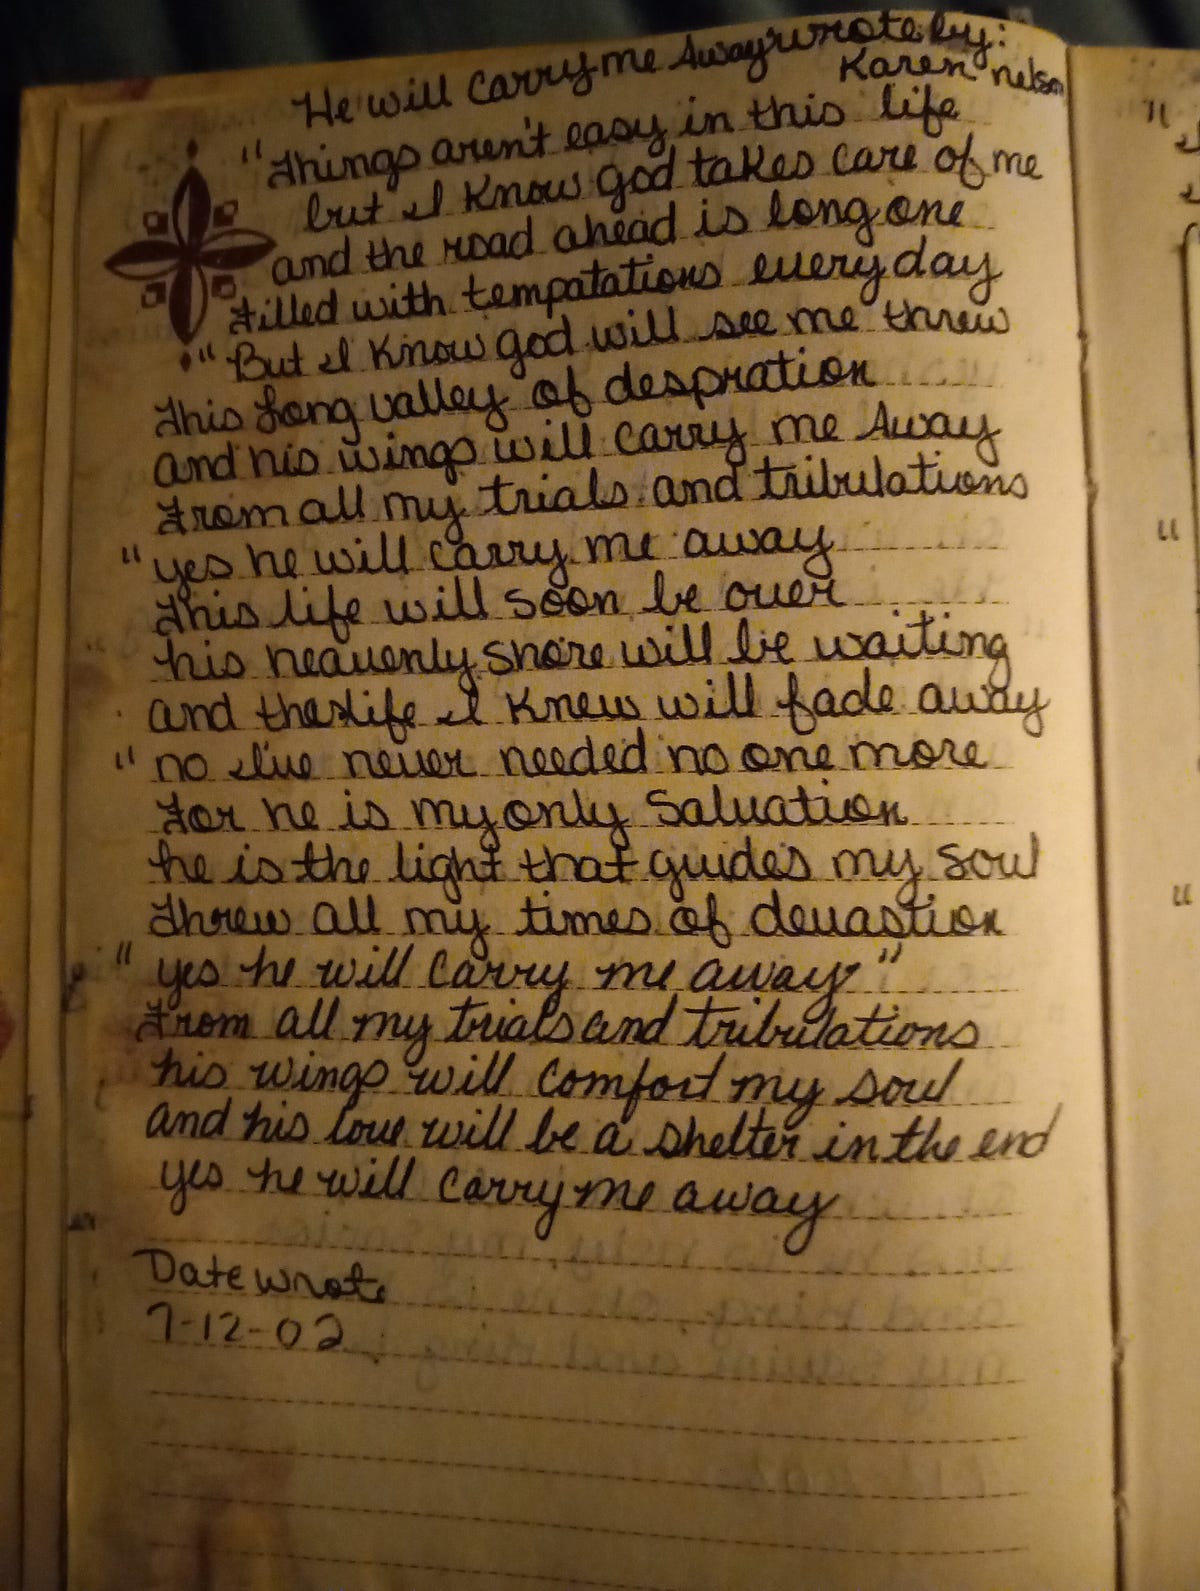 He will carry me Away wrote by:
Karen nelson
"Things aren't easy in this life
but I Know god takes care of me
and the road ahead is long one
Filled with tempatations everyday
"But I Know god will see me threw
This long valley of despration
and his wings will carry me Away
From all my trials and tribulations
"yes he will carry me away
This life will soon be over
his heavenly shore will be waiting
and the life I Knew will fade away
"no I've never needed no one more
For he is my only Salvation
he is the light that guides my soul
Threw all my times of devastion
"yes he will carry me away"
From all my trials and tribulations
his wings will comfort my soul
and his love will be a shelter in the end
yes he will carry me away
Date wrote
7-12-02